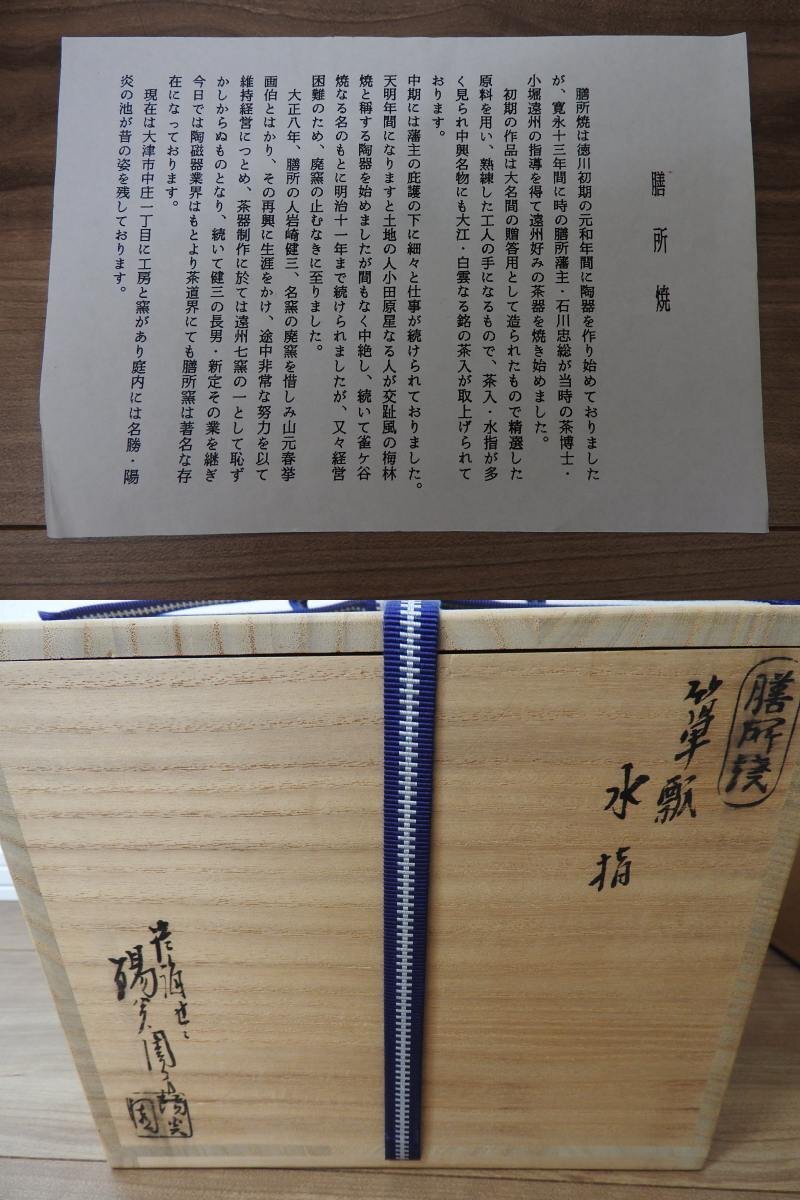 膳所焼
膳所焼は徳川初期の元和年間に陶器を作り始めておりました
が、寛永十三年間に時の膳所藩主・石川忠総が当時の茶博士・
小堀遠州の指導を得て遠州好みの茶器を焼き始めました。
初期の作品は大名間の贈答用として造られたもので精選した
原料を用い、熟練した工人の手になるもので、茶入・水指が多
く見られ中興名物にも大江・白雲なる銘の茶入が取上げられて
おります。
中期には藩主の庇護の下に細々と仕事が続けられておりました。
天明年間になりますと土地の人小田原星なる人が交趾風の梅林
焼と称する陶器を始めましたが間もなく中絶し、続いて雀ヶ谷
焼なる名のもとに明治十一年まで続けられましたが、又々経営
困難のため、廃窯の止むなきに至りました。
大正八年、膳所の人岩崎健三、名窯の廃窯を惜しみ山元春挙
画伯とはかり、その再興に生涯をかけ、途中非常な努力を以て
維持経営につとめ、茶器制作に於ては遠州七窯の一として恥ず
かしからぬものとなり、続いて健三の長男・新定その業を継ぎ
今日では陶磁器業界はもとより茶道界にても膳所窯は著名な存
在になっております。
現在は大津市中庄一丁目に工房と窯があり庭内には名勝・陽
炎の池が昔の姿を残しております。
膳所焼
瓢
水指
陽炎園